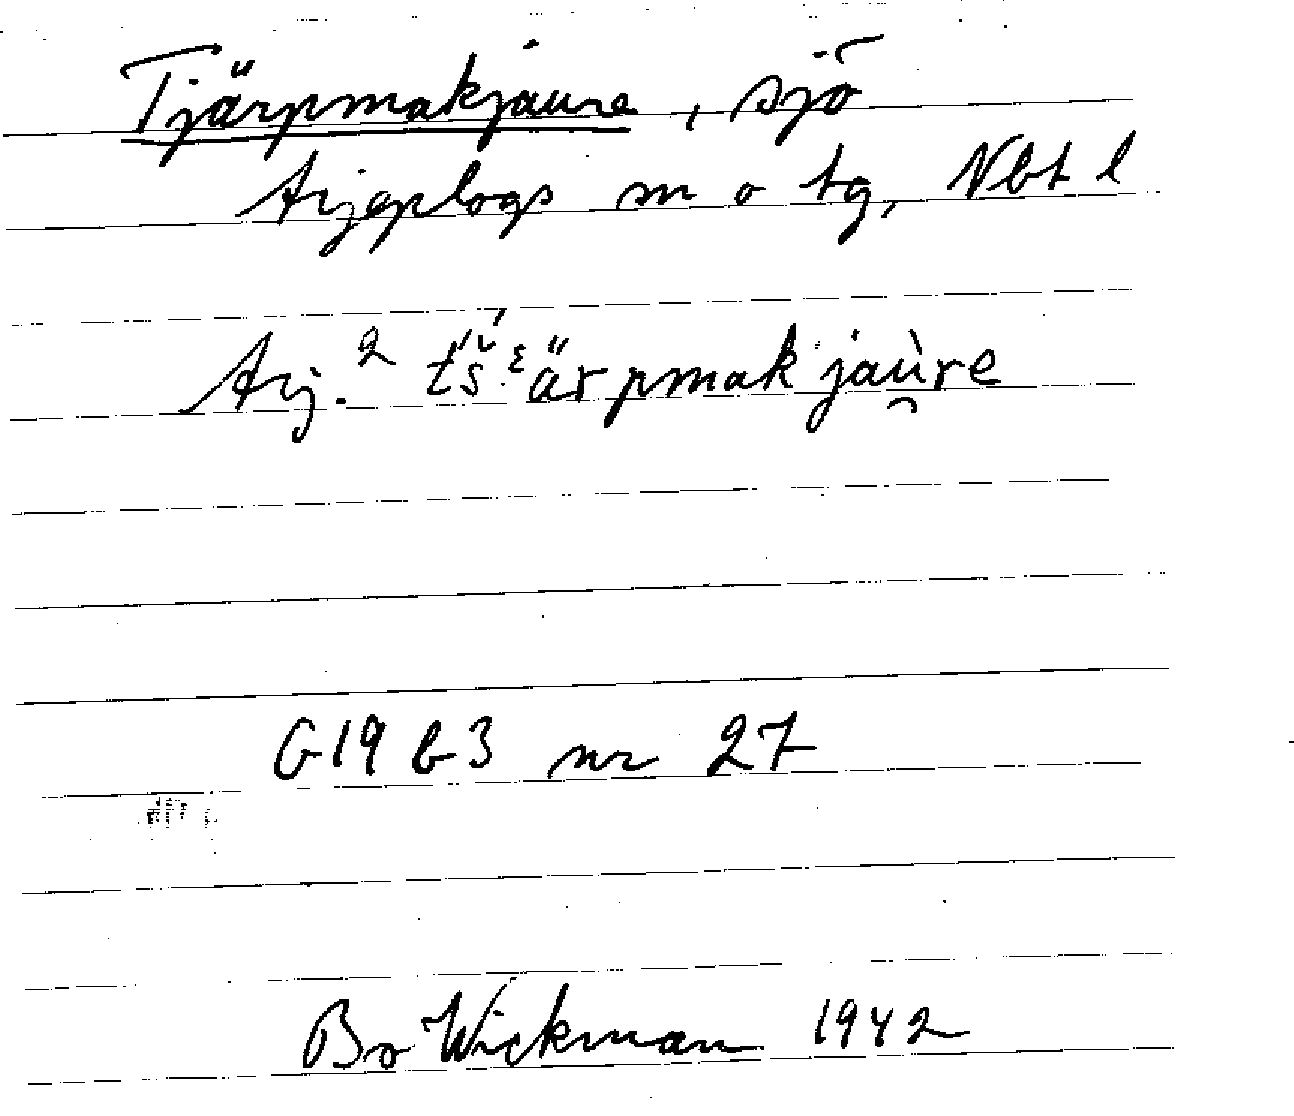 Tjärpmakjaure, sjö
Arjeplogs sn o tg, Nbt l
Arj. 2 t́š́ɛärpmakjaùre
G19 b3 nr 27
Bo Wickman 1942